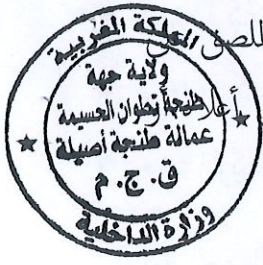 للصق
المملكة المغربية
ولاية جهة
طنجة تطوان الحسيمة
عمالة طنجة أصيلة
ق. ج. م
وزارة الداخلية